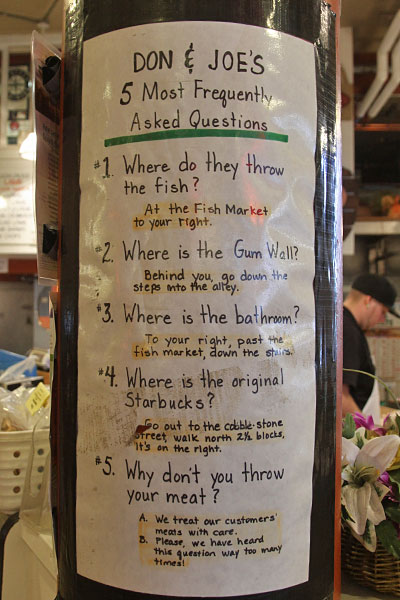 DON & JOE'S
5 Most Frequently
Asked Questions
#1. Where do they throw
the fish?
At the Fish Market
to your right.
#2. Where is the Gum Wall?
Behind you, go down the
steps into the alley.
#3. Where is the bathroom?
To your right, past the
fish market, down the stairs.
#4. Where is the original
Starbucks?
Go out to the cobble-stone
street, walk north 2½ blocks,
it's on the right.
#5. Why don't you throw
your meat?
A. We treat our customers'
meats with care.
B. Please, we have heard
this question way too many
times!